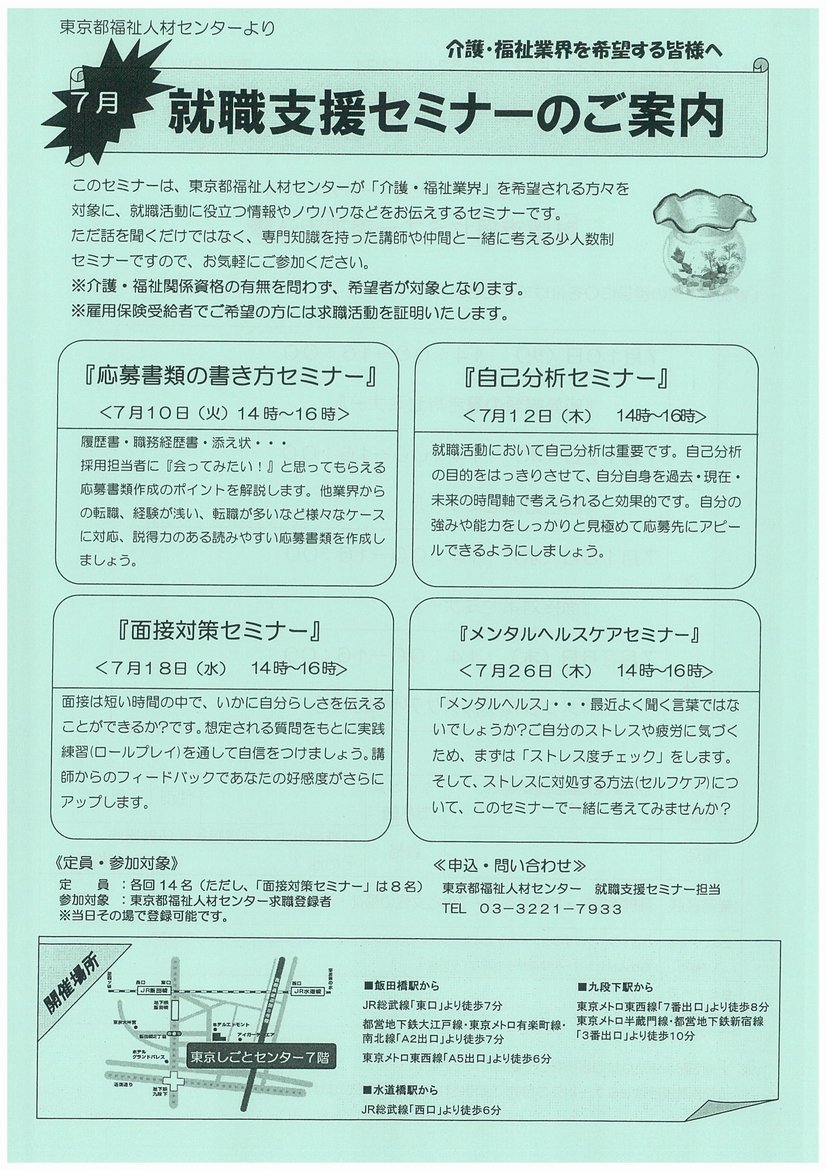 東京都福祉人材センターより
介護・福祉業界を希望する皆様へ
7月
就職支援セミナーのご案内
このセミナーは、東京都福祉人材センターが「介護・福祉業界」を希望される方々を
対象に、就職活動に役立つ情報やノウハウなどをお伝えするセミナーです。
ただ話を聞くだけではなく、専門知識を持った講師や仲間と一緒に考える少人数制
セミナーですので、お気軽にご参加ください。
※介護・福祉関係資格の有無を問わず、希望者が対象となります。
※雇用保険受給者でご希望の方には求職活動を証明いたします。
『応募書類の書き方セミナー』
<7月10日（火）14時～16時>
履歴書・職務経歴書・添え状・・・
採用担当者に『会ってみたい！』と思ってもらえる
応募書類作成のポイントを解説します。他業界から
の転職、経験が浅い、転職が多いなど様々なケース
に対応、説得力のある読みやすい応募書類を作成し
ましょう。
『自己分析セミナー』
<7月12日（木） 14時～16時>
就職活動において自己分析は重要です。自己分析
の目的をはっきりさせて、自分自身を過去・現在・
未来の時間軸で考えられると効果的です。自分の
強みや能力をしっかりと見極めて応募先にアピー
ルできるようにしましょう。
『面接対策セミナー』
<7月18日（水） 14時～16時>
面接は短い時間の中で、いかに自分らしさを伝える
ことができるか?です。想定される質問をもとに実践
練習(ロールプレイ)を通して自信をつけましょう。講
師からのフィードバックであなたの好感度がさらに
アップします。
『メンタルヘルスケアセミナー』
<7月26日（木） 14時～16時>
「メンタルヘルス」・・・最近よく聞く言葉ではな
いでしょうか?ご自分のストレスや疲労に気づく
ため、まずは「ストレス度チェック」をします。
そして、ストレスに対処する方法(セルフケア)につ
いて、このセミナーで一緒に考えてみませんか？
《定員・参加対象》
定 員 ：各回14名（ただし、「面接対策セミナー」は8名）
参加対象 ：東京都福祉人材センター求職登録者
※当日その場で登録可能です。
≪申込・問い合わせ≫
東京都福祉人材センター 就職支援セミナー担当
TEL 03－3221－7933
開催場所
西口
東口
JR飯田橋
西口
JR水道橋
地下鉄
飯田橋
東京大神宮
飯田橋2丁目
ホテルエドモント
アイガーデンエア
ホテル
グランドパレス
東京しごとセンター7階
目白通り
地下鉄
九段下
■飯田橋駅から
JR総武線「東口」より徒歩7分
都営地下鉄大江戸線・東京メトロ有楽町線・
南北線「A2出口」より徒歩7分
東京メトロ東西線「A5出口」より徒歩6分
■水道橋駅から
JR総武線「西口」より徒歩6分
■九段下駅から
東京メトロ東西線「7番出口」より徒歩8分
東京メトロ半蔵門線・都営地下鉄新宿線
「3番出口」より徒歩10分